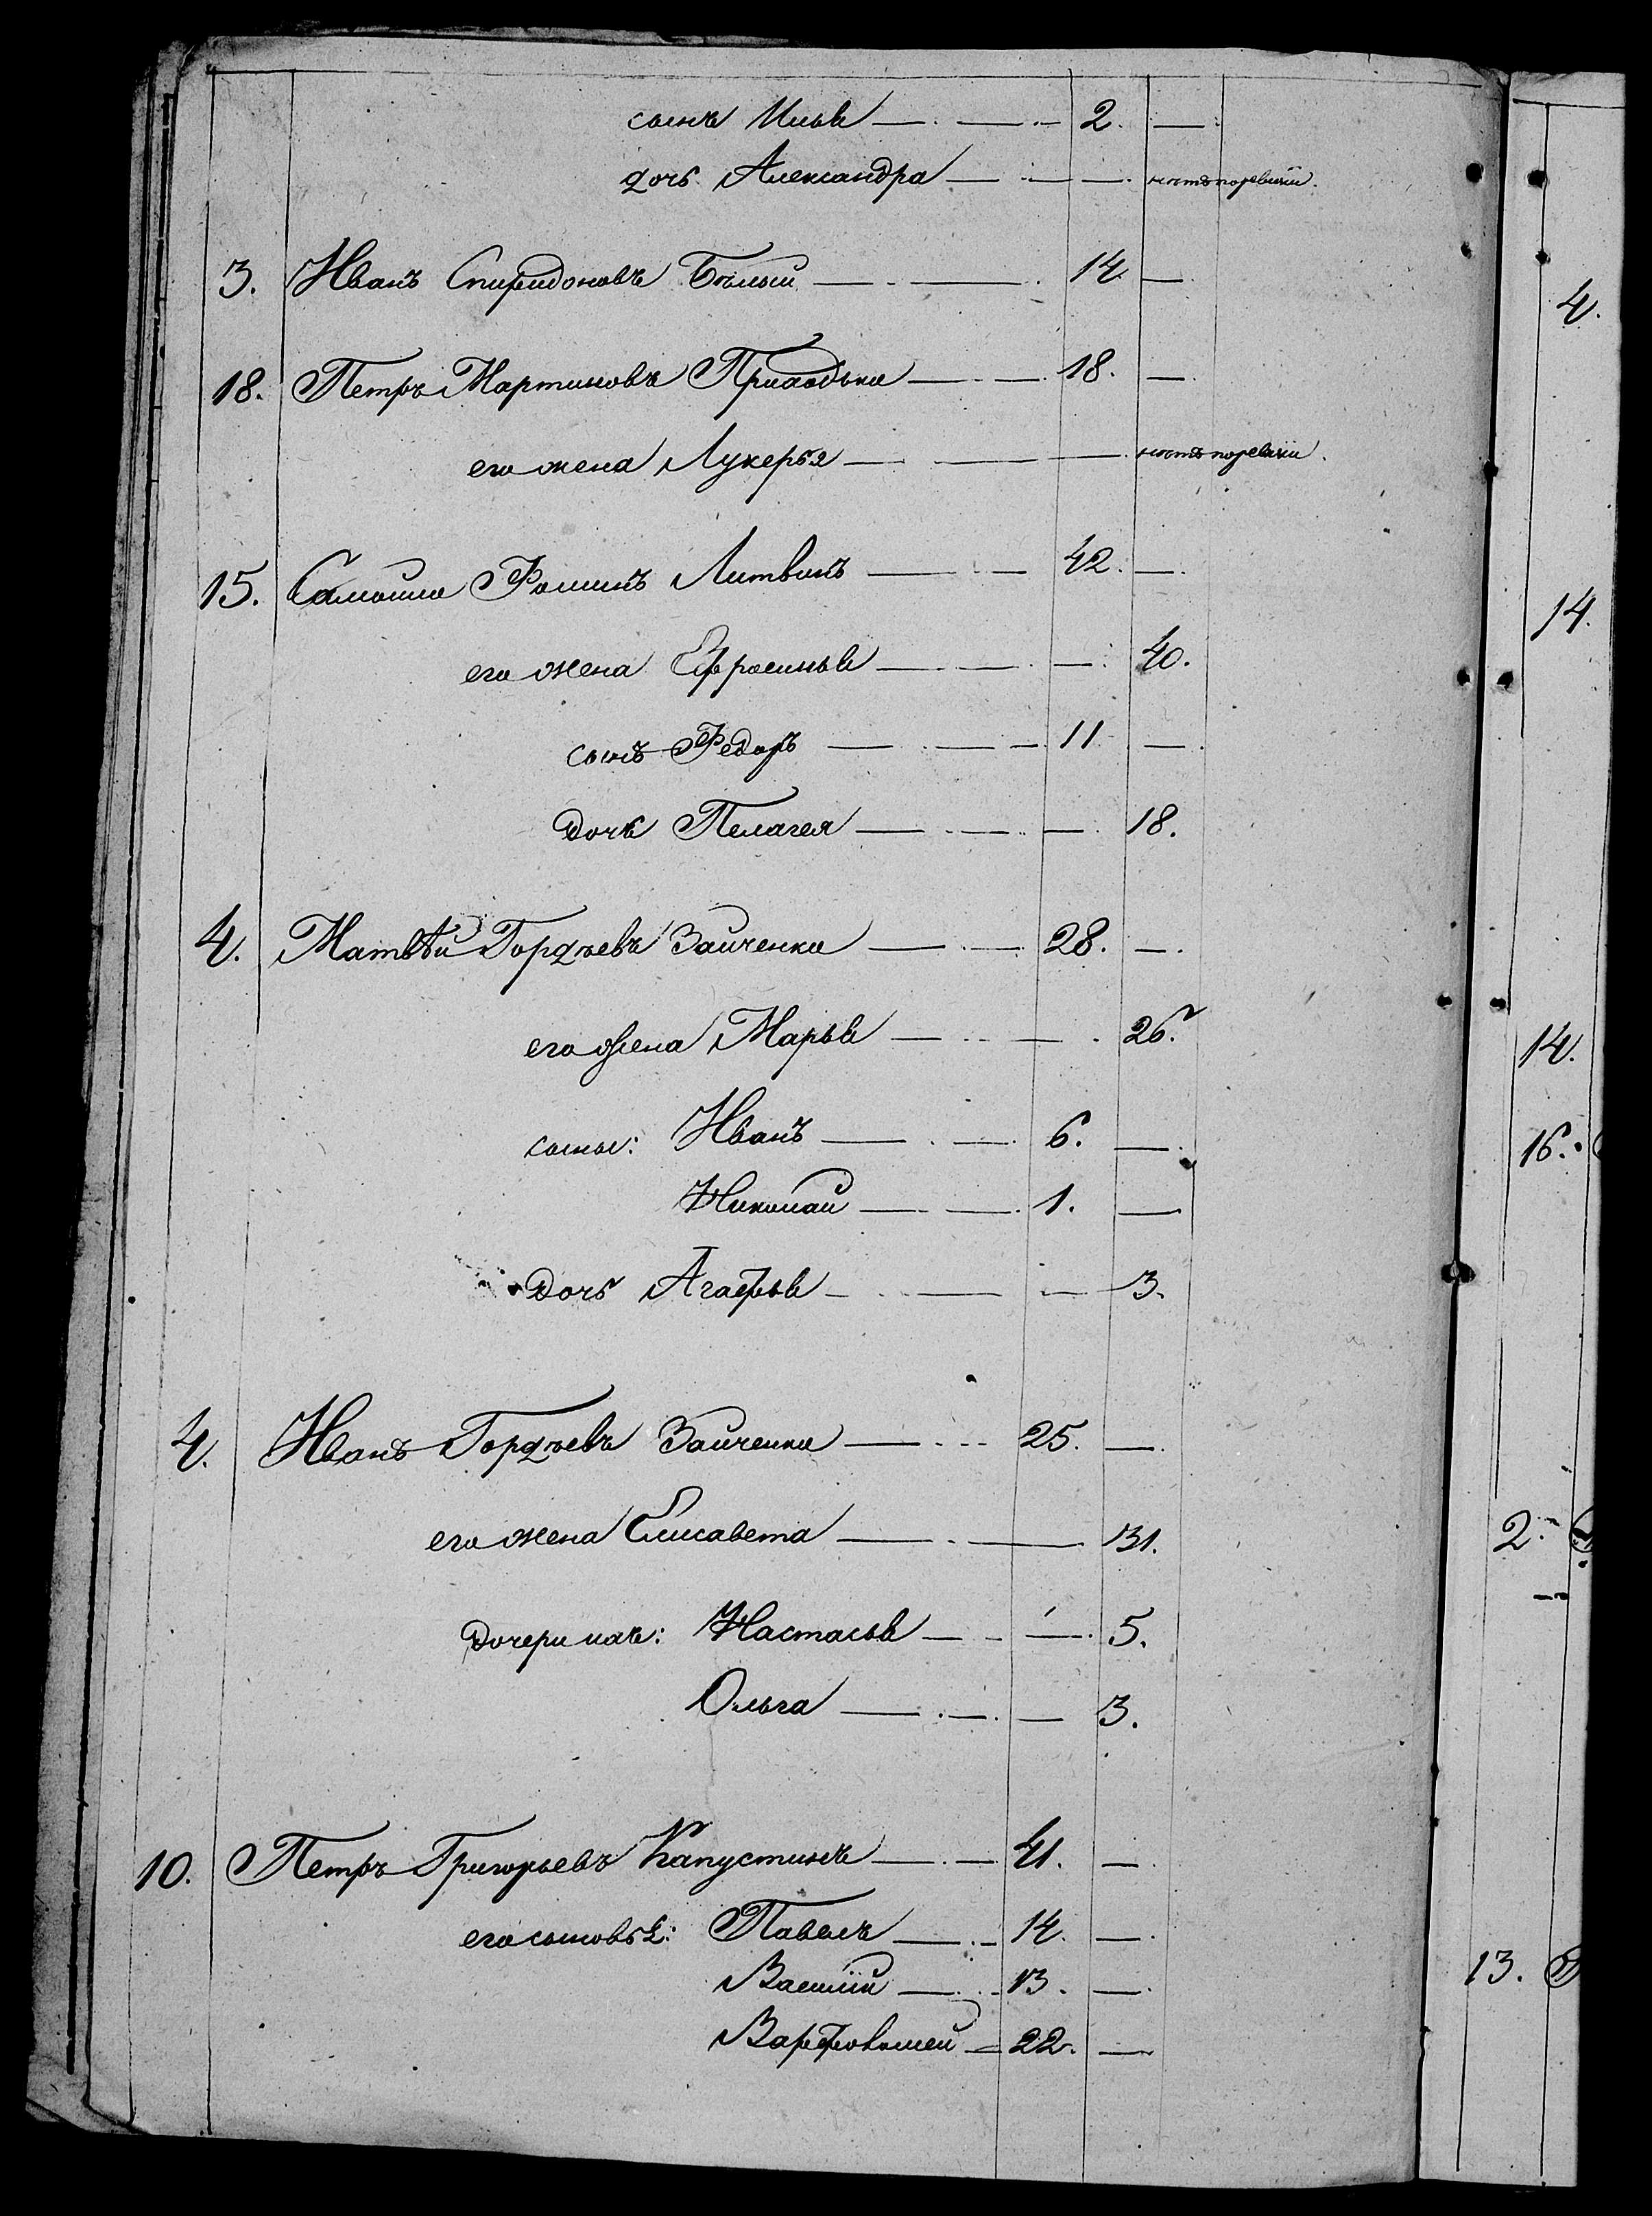 сынъ Илья — 2. —
дочь Александра — —
3. Иванъ Спиридоновъ Бѣлый — 14 —
18. Петръ Мартиновъ Приходька — 18. —
его жена Лукерья — —
15. Самойла Фоминъ Литвинъ — 42. —
его жена Ефросинья — — 40.
сынъ Федоръ — 11 —
дочь Пелагея — — 18.
4. Матвѣй Гордѣевъ Заиченка — 28. —
его жена Марья — — 26.
сыны: Иванъ — 6. —
Николай — 1. —
дочь Агафья — — 3.
4. Иванъ Гордѣевъ Заиченка — 25. —
его жена Елисавета — — 31.
дочери ихъ: Настасья — — 5.
Ольга — — 3.
10. Петръ Григорьевъ Капустинъ — 41. —
его сыновья: Павелъ — 14. —
Василій — 13. —
Варфоломей — 22. —
4.
14.
14.
16.
2.
13.